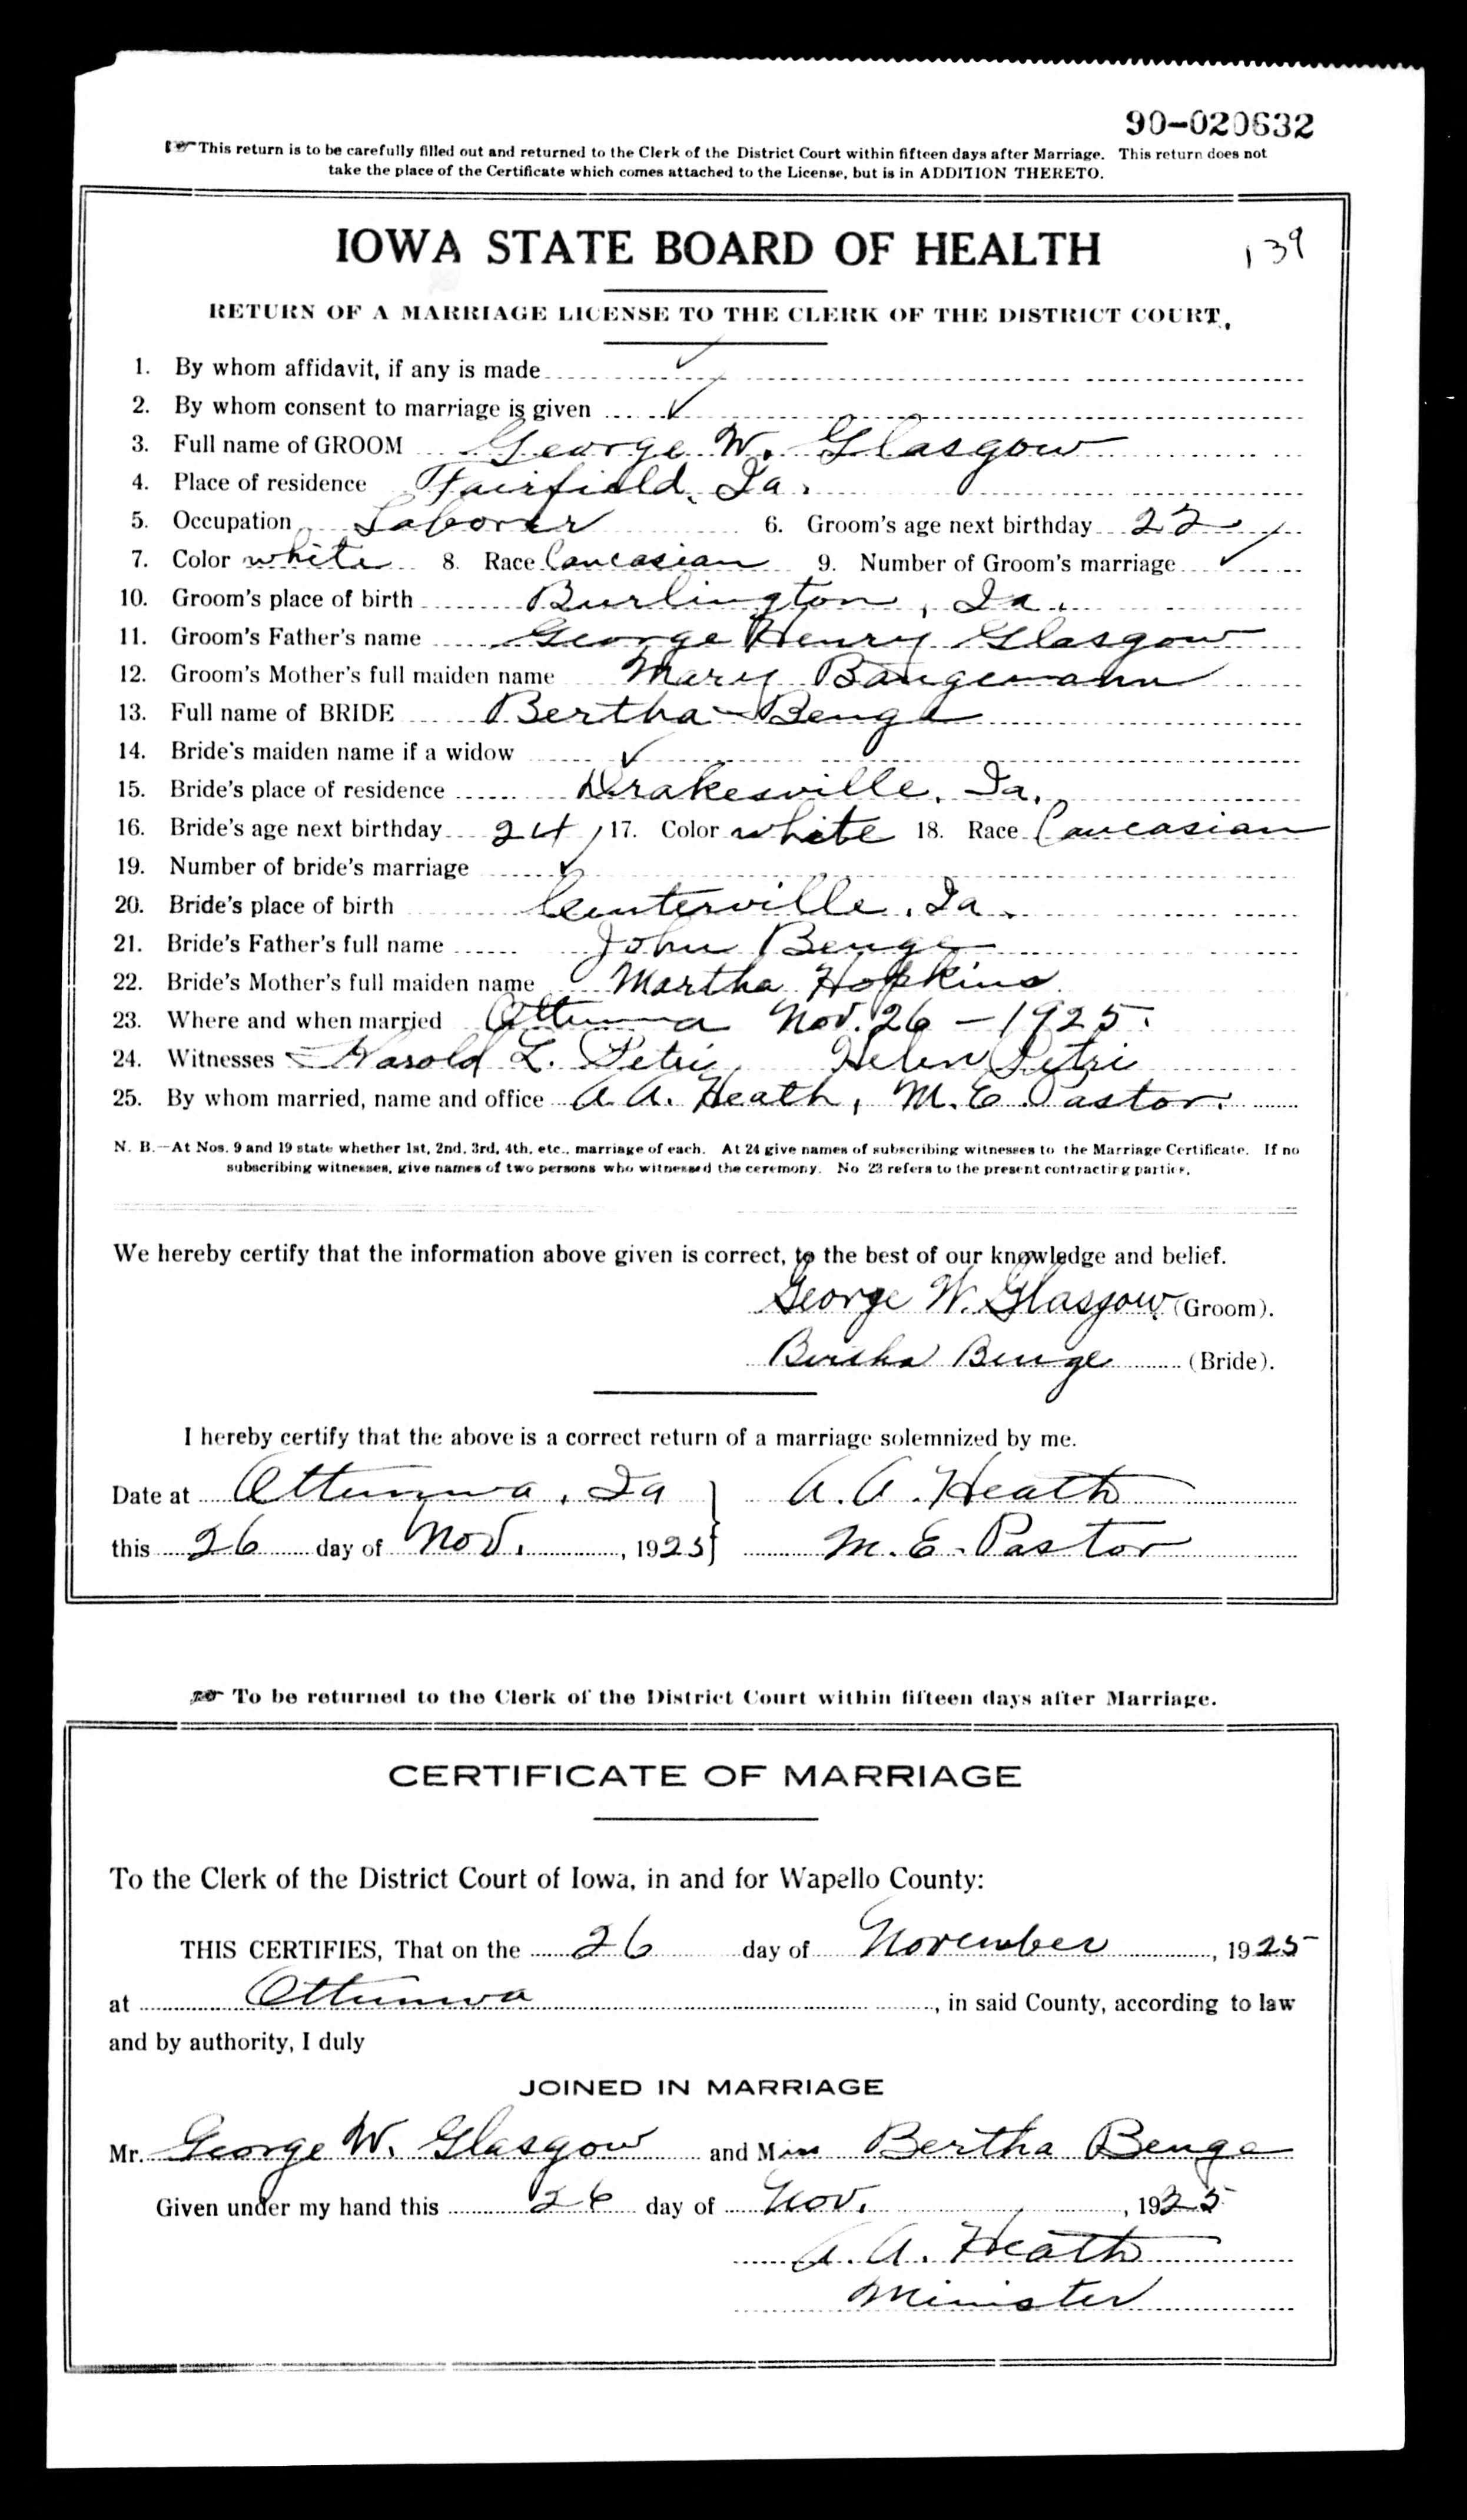 90-020632
This return is to be carefully filled out and returned to the Clerk of the District Court within fifteen days after Marriage. This return does not
take the place of the Certificate which comes attached to the License, but is in ADDITION THERETO.
IOWA STATE BOARD OF HEALTH 139
RETURN OF A MARRIAGE LICENSE TO THE CLERK OF THE DISTRICT COURT.
1. By whom affidavit, if any is made ✓
2. By whom consent to marriage is given ✓
3. Full name of GROOM George W. Glasgow
4. Place of residence Fairfield, Ia.
5. Occupation Laborer 6. Groom's age next birthday 22
7. Color white 8. Race Caucasian 9. Number of Groom's marriage ✓
10. Groom's place of birth Burlington, Ia.
11. Groom's Father's name George Henry Glasgow
12. Groom's Mother's full maiden name Mary Bangemann
13. Full name of BRIDE Bertha Benge
14. Bride's maiden name if a widow ✓
15. Bride's place of residence Drakesville, Ia.
16. Bride's age next birthday 24 17. Color white 18. Race Caucasian
19. Number of bride's marriage ✓
20. Bride's place of birth Centerville, Ia.
21. Bride's Father's full name John Benge
22. Bride's Mother's full maiden name Martha Hopkins
23. Where and when married Ottumwa Nov. 26 - 1925.
24. Witnesses Harold L. Petri Helen Petri
25. By whom married, name and office A. A. Heath, M. E. Pastor.
N. B.—At Nos. 9 and 19 state whether 1st, 2nd, 3rd, 4th, etc., marriage of each. At 24 give names of subscribing witnesses to the Marriage Certificate. If no
subscribing witnesses, give names of two persons who witnessed the ceremony. No 23 refers to the present contracting parties.
We hereby certify that the information above given is correct, to the best of our knowledge and belief.
George W. Glasgow (Groom).
Bertha Benge (Bride).
I hereby certify that the above is a correct return of a marriage solemnized by me.
Date at Ottumwa, Ia } A. A. Heath
this 26 day of Nov., 1925 } M. E. Pastor
To be returned to the Clerk of the District Court within fifteen days after Marriage.
CERTIFICATE OF MARRIAGE
To the Clerk of the District Court of Iowa, in and for Wapello County:
THIS CERTIFIES, That on the 26 day of November, 1925
at Ottumwa, in said County, according to law
and by authority, I duly
JOINED IN MARRIAGE
Mr. George W. Glasgow and Miss Bertha Benge
Given under my hand this 26 day of Nov., 1925
A. A. Heath
Minister